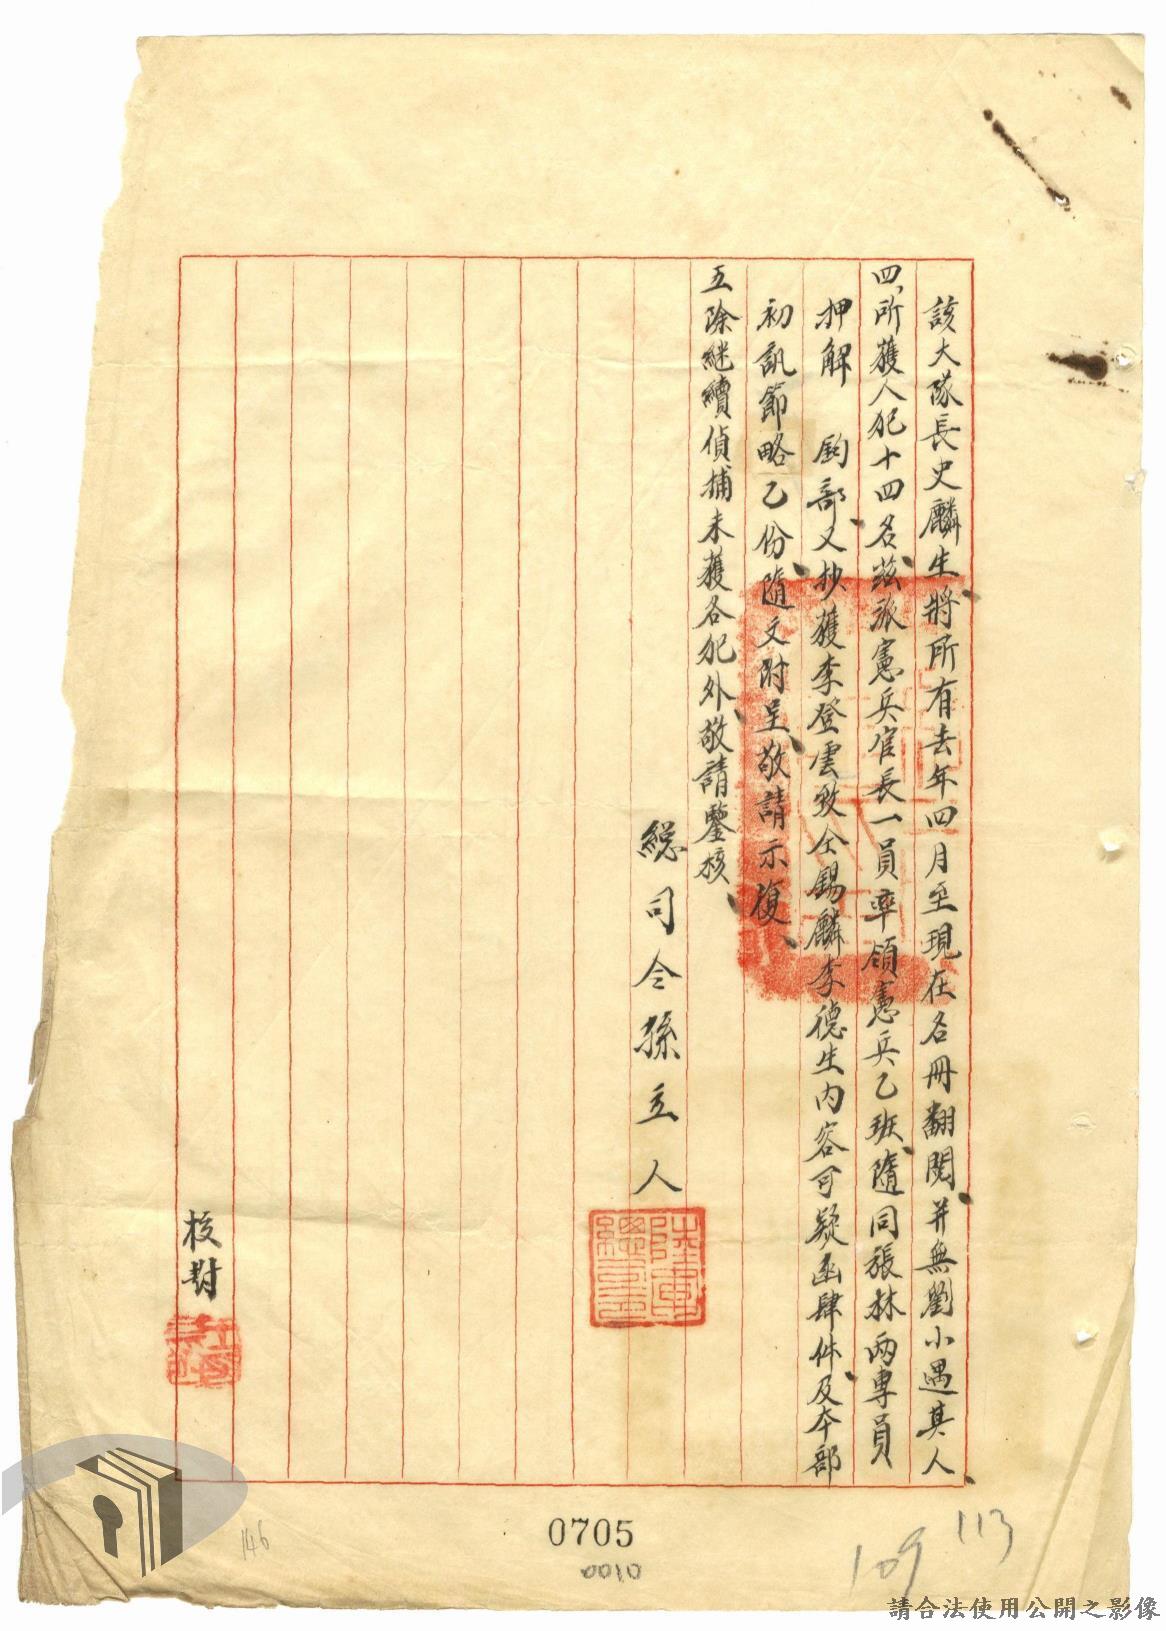 該大隊長史麟生將所有去年四月至現在名冊翻閱、并無劉小遇其人、
四、所獲人犯十四名、茲派憲兵官長一員率領憲兵乙班、隨同張林兩專員
押解　鈞部、又抄獲李登雲致仝錫麟李德生內容可疑函肆件、及本部
初訊節略乙份、隨文附呈、敬請示復、
五除繼續偵捕未獲各犯外、敬請鑒核、
總司令孫立人
陸軍總司令
校對
0705
0010
146
109
113
請合法使用公開之影像